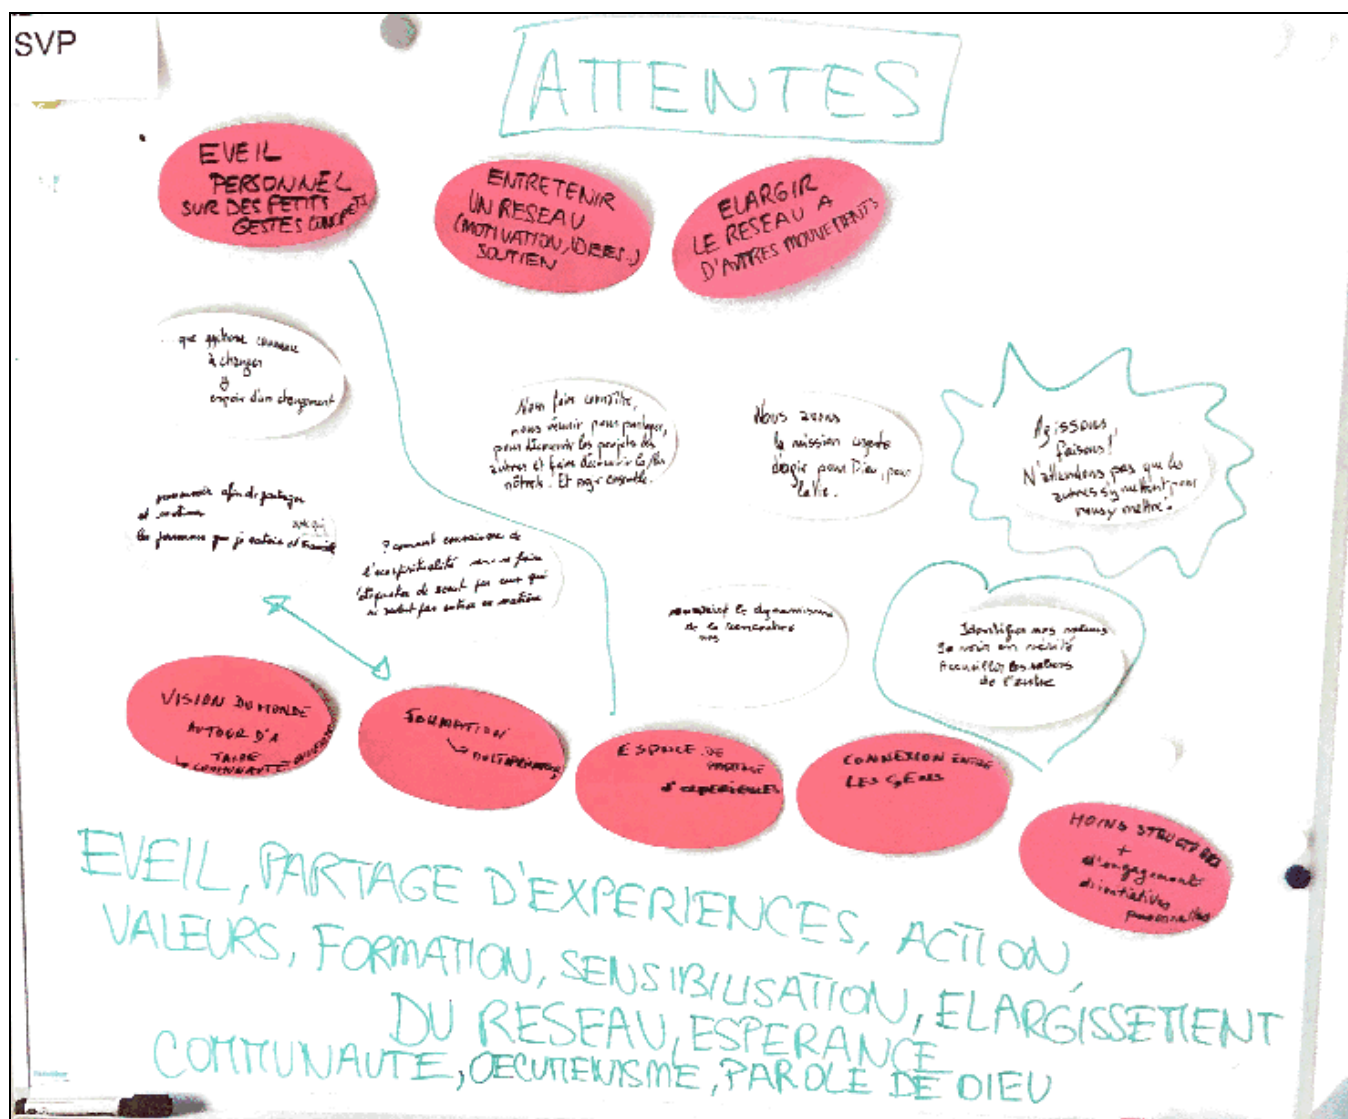 SVP
ATTENTES
EVEIL
PERSONNEL
SUR DES PETITS
GESTES CONCRETS
ENTRETENIR
UN RESEAU
(MOTIVATION, IDEES...)
SOUTIEN
ELARGIR
LE RESEAU A
D'AUTRES MOUVEMENTS
à changer
espoir d'un changement
Nous faire connaître,
nous réunir pour partager,
pour découvrir les projets des
autres et faire découvrir les
nôtres. Et agir ensemble.
Nous avons
la mission urgente
d'agir pour Dieu, pour
la Vie.
Agissons,
faisons!
N'attendons pas que les
autres s'y mettent pour
nous y mettre!
afin de partager
et
les personnes que je
avec qui
? comment
l'écospiritualité sans se faire
par ceux qui
ne veulent pas entrer en matière
le dynamisme
de la rencontre
Identifier nos valeurs
Se voir en vérité
Accueillir les valeurs
de l'autre
VISION DU MONDE
AUTOUR D'A
COMMUNAUTE
FORMATION
ESPACE DE
PARTAGE
D'EXPERIENCES
CONNEXION ENTRE
LES GENS
MOINS STRUCTURES
+
d'engagement
d'initiatives
personnelles
EVEIL, PARTAGE D'EXPERIENCES, ACTION,
VALEURS, FORMATION, SENSIBILISATION, ELARGISSEMENT
DU RESEAU, ESPERANCE
COMMUNAUTE, OECUMENISME, PAROLE DE DIEU